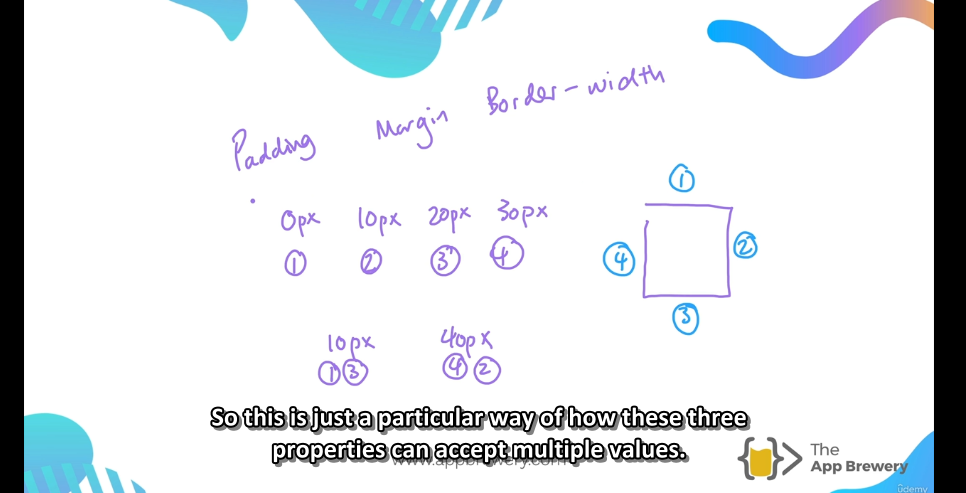 Padding Margin Border-width
0px 10px 20px 30px
1 2 3 4
1
4 2
3
10px 40px
1 3 4 2
So this is just a particular way of how these three
properties can accept multiple values.
www.appbrewery.com
The
App Brewery
ûdemy